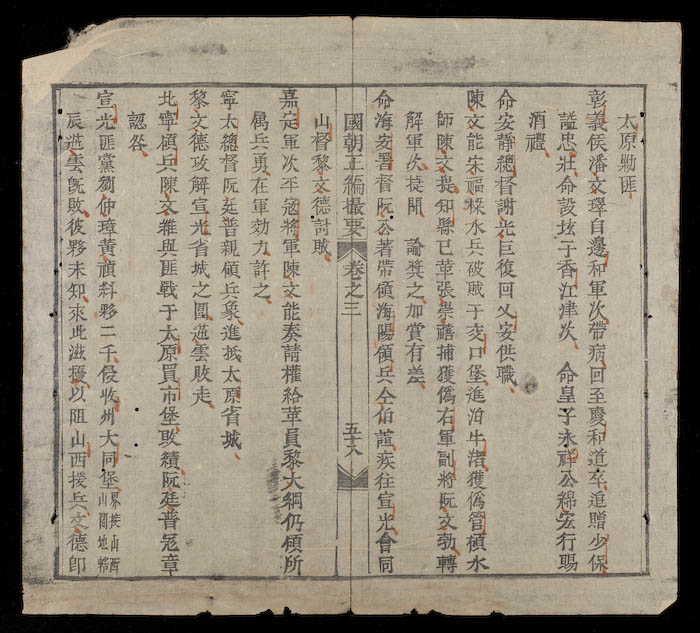 太原勦匪
彰義侯潘文璻自邊和軍次帶病回至慶和道卒追贈少保
謚忠壯命設坛于香江津次 命皇子永祥公綿宏行賜
酒禮
命安靜總督謝光巨復回乂安供職
陳文能宋福樑水兵破賊于交口堡進泊牛渚獲偽管領水
師陳文提知縣已革張崇禧捕獲偽右軍副將阮文勃轉
解軍次提聞 諭獎之加賞有差
命海安署督阮公著帶領海陽領兵仝伯誼疾往宣光會同
國朝正編撮要 卷之三 五十八
山督黎文德討賊
嘉定軍次平寇將軍陳文能奏請權給革員黎大綱仍領所
属兵勇在軍効力許之
寧太總督阮廷普親領兵象進抵太原省城
黎文德攻解宣光省城之圍逆雲敗走
北寧領兵陳文維與匪戰于太原買市堡敗績阮廷普冠章
認咎
宣光匪黨劉仲璋黃禎糾夥二千侵收州大同堡
山西
山間地轄
辰逆雲既敗彼夥未知來此滋擾以阻山西援兵文德即